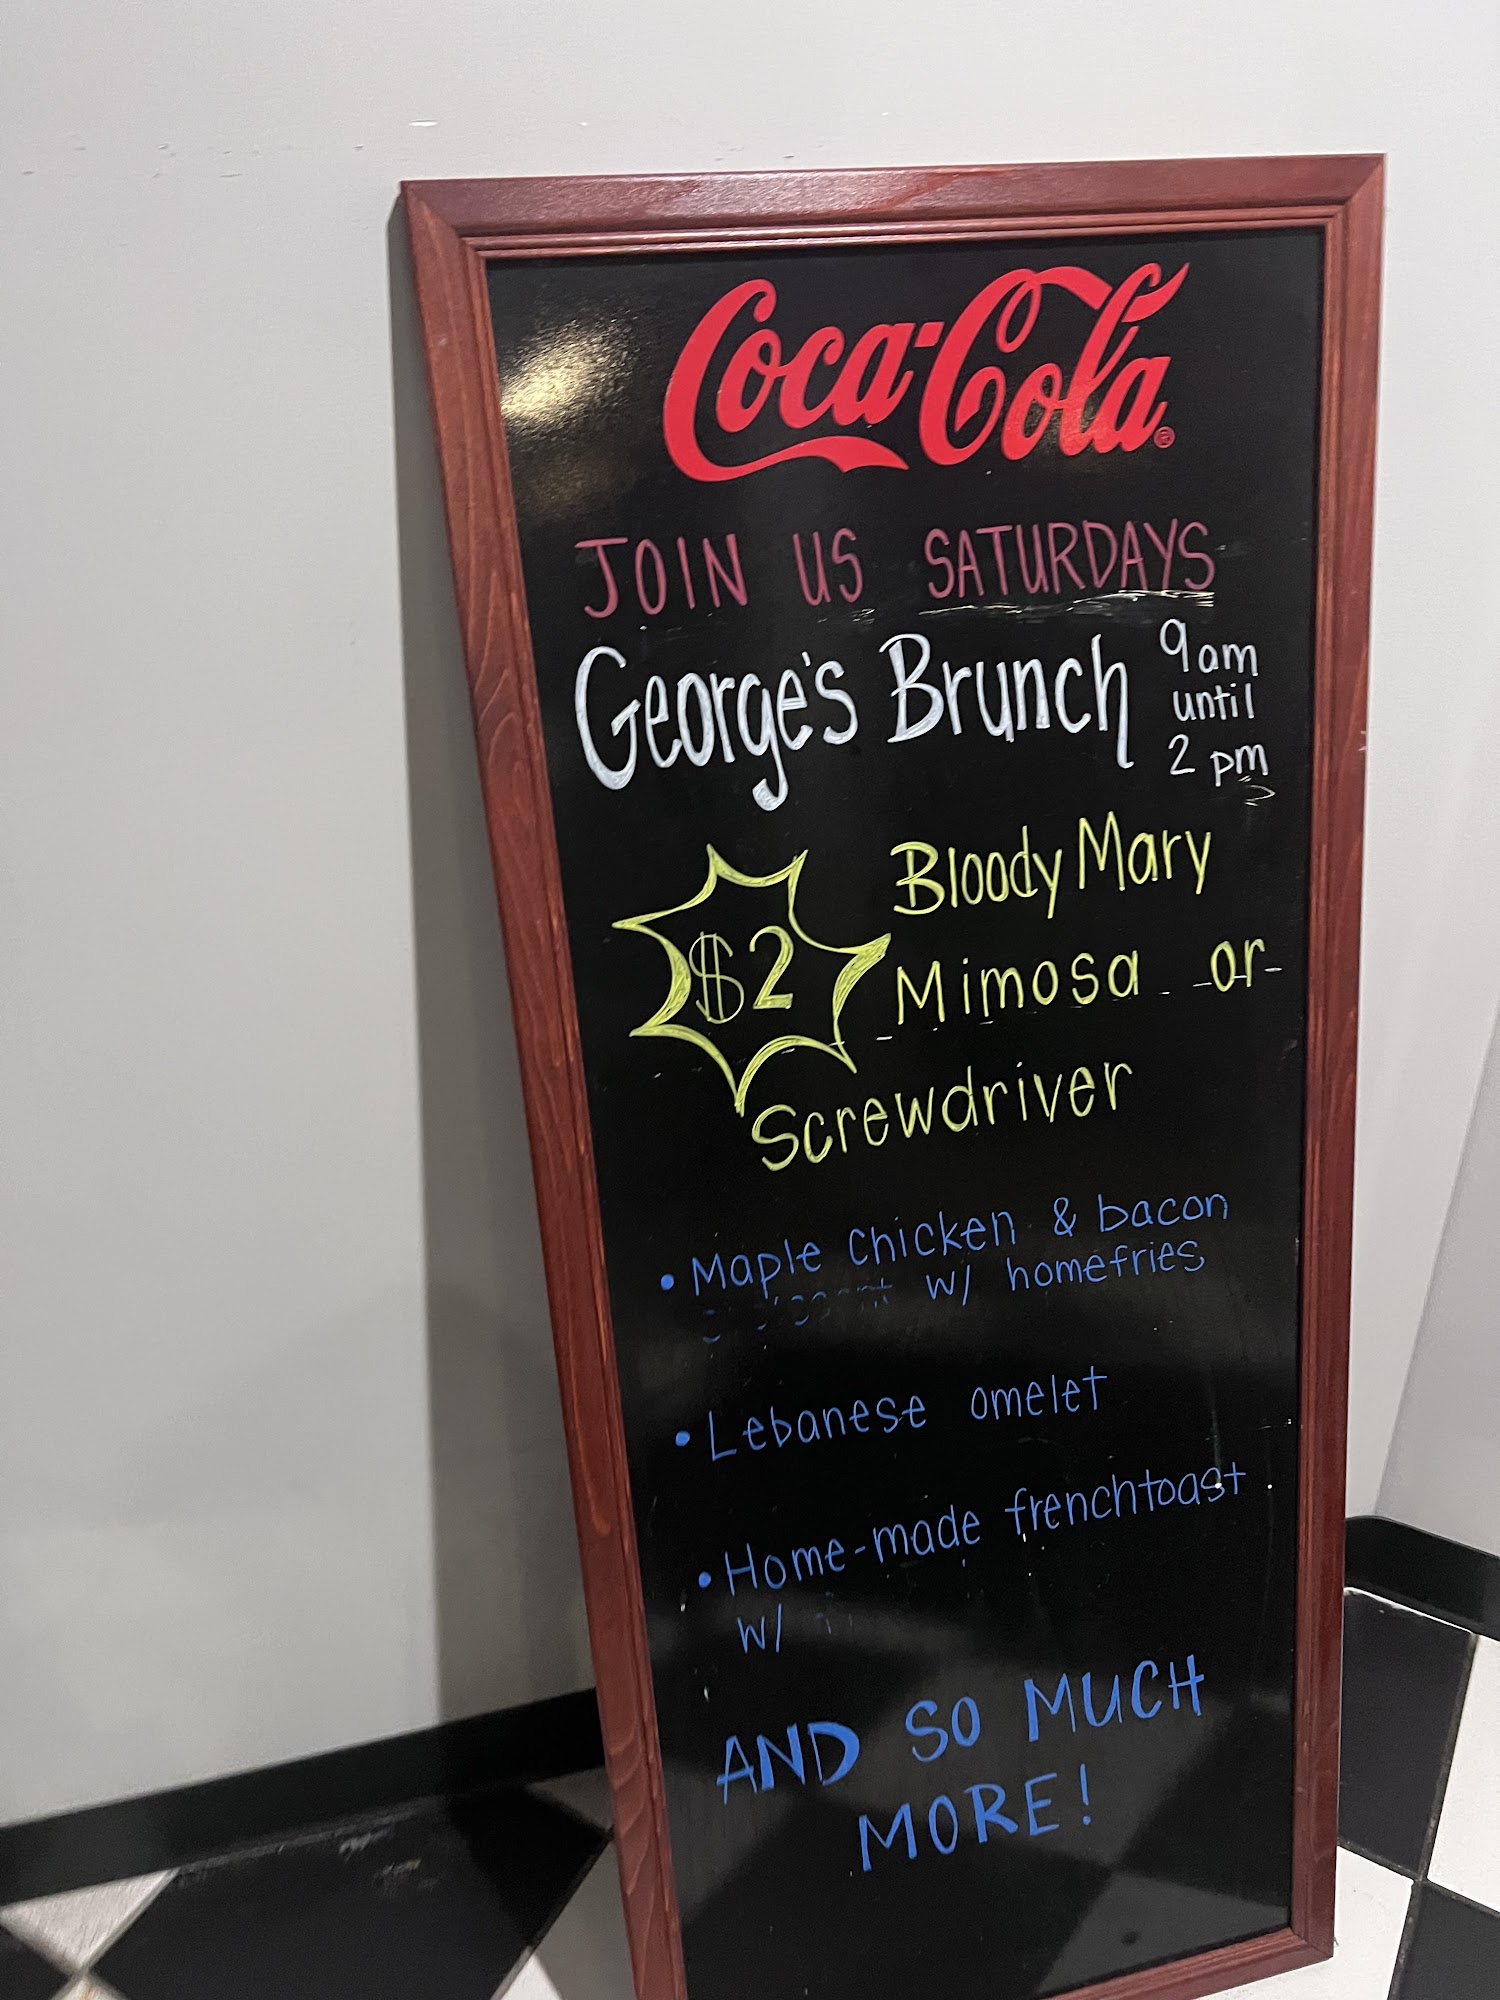 Coca-Cola®
JOIN US SATURDAYS
George's Brunch
9am
until
2 pm
$2
Bloody Mary
Mimosa or
Screwdriver
• Maple Chicken & bacon
w/ homefries
• Lebanese omelet
• Home-made frenchtoast
w/
AND SO MUCH
MORE!